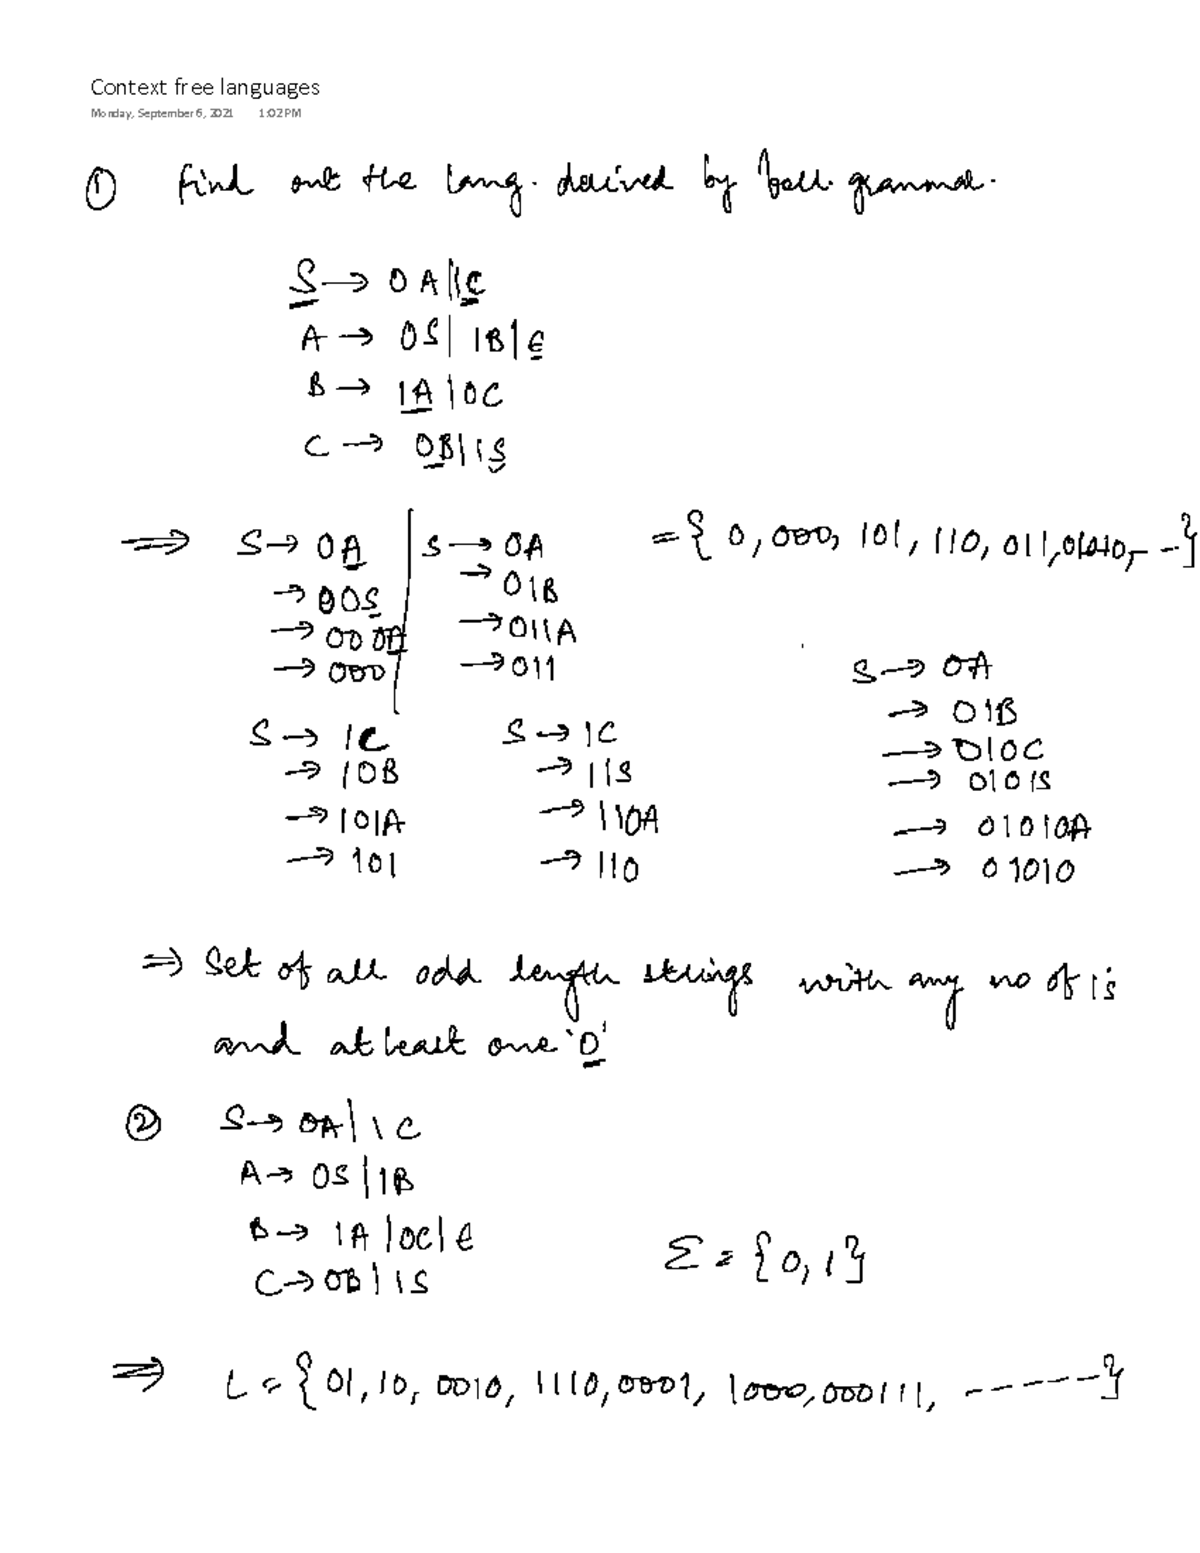 Context free languages
Monday, September 6, 2021 1:02 PM
① find out the lang. derived by foll. grammar.
S → 0A|1C
A → 0S|1B|ϵ
B → 1A|0C
C → 0B|1S
⇒ S → 0A | S → 0A = { 0, 000, 101, 110, 011, 01010, - - }
→ 00S → 01B
→ 000A → 011A
→ 000 → 011
S → 1C S → 1C S → 0A
→ 10B → 11S → 01B
→ 101A → 110A → 010C
→ 101 → 110 → 0101S
→ 01010A
→ 01010
⇒ Set of all odd length strings with any no of 1's
and atleast one '0'
② S → 0A|1C
A → 0S|1B
B → 1A|0C|ϵ
C → 0B|1S
Σ = {0,1}
⇒ L = { 01, 10, 0010, 1110, 0001, 1000, 000111, ------ }